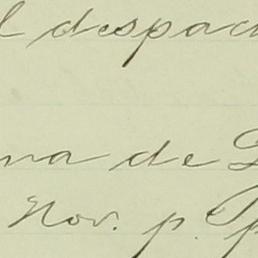 l despac
na de
Nov. p.